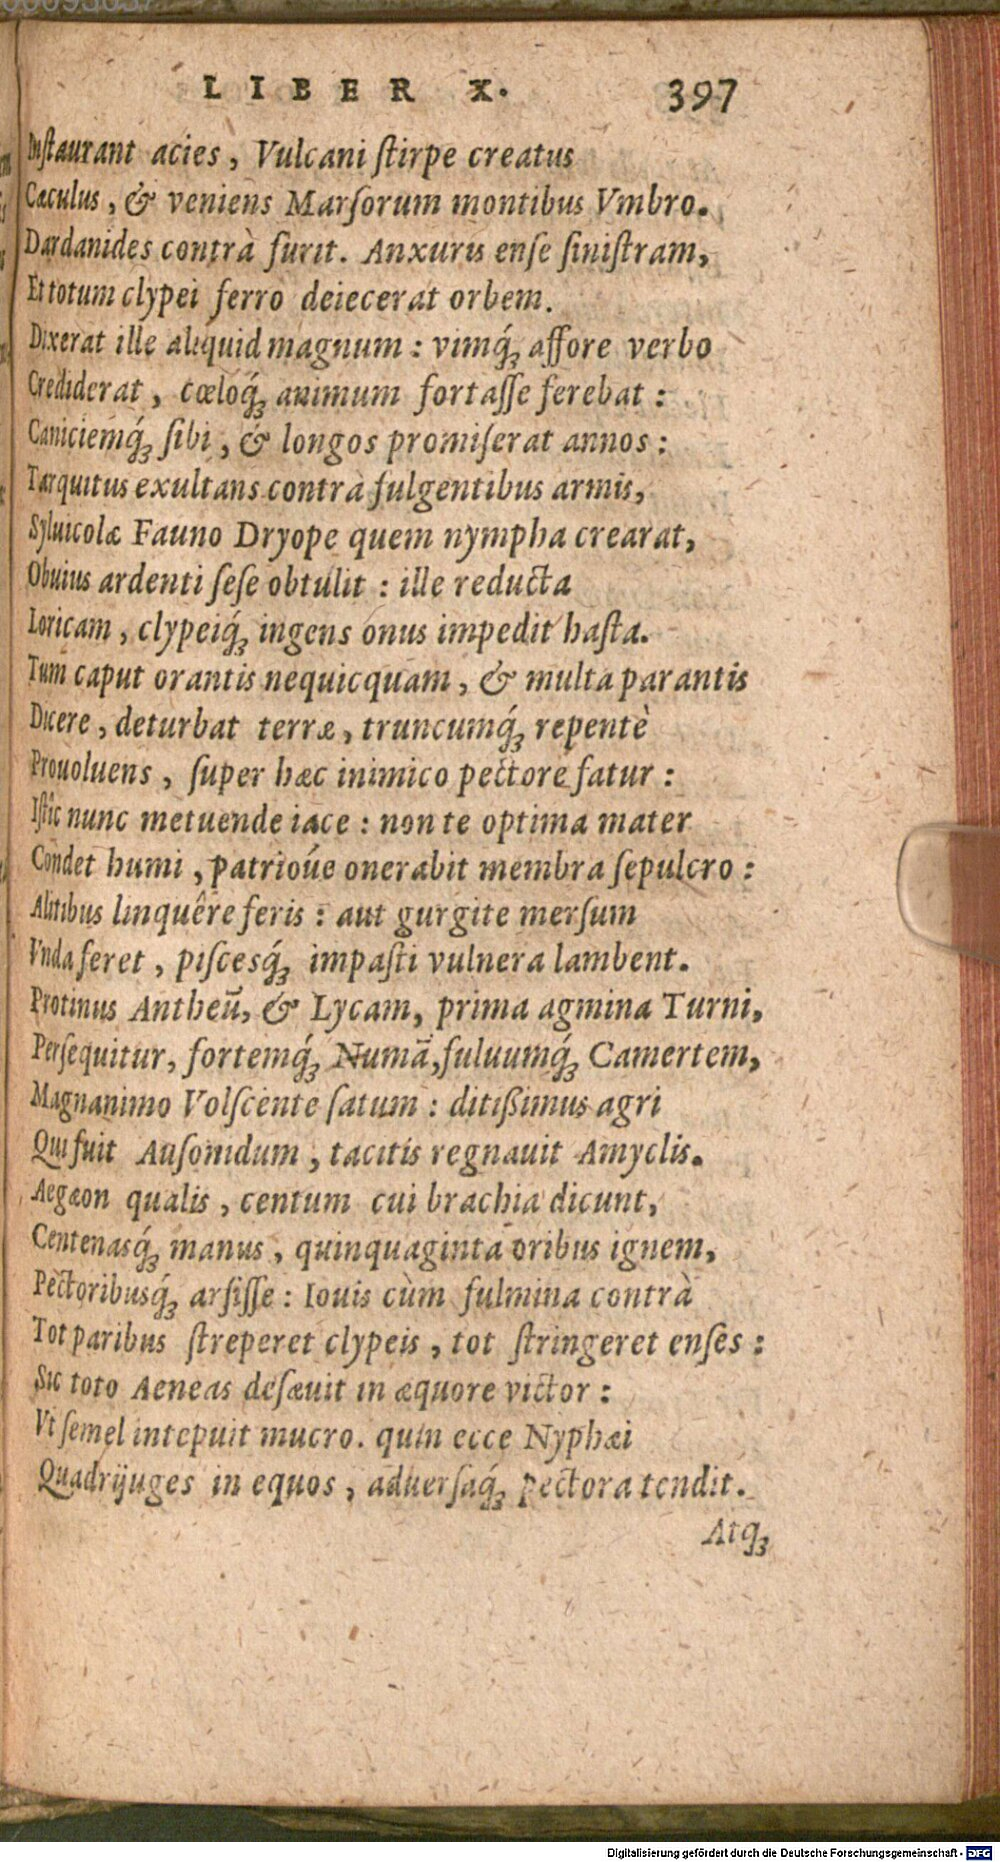 LIBER X. 397
Instaurant acies, Vulcani ſtirpe creatus
Cæculus, & veniens Marſorum montibus Vmbro.
Dardanides contrà furit. Anxuris enſe ſiniſtram,
Et totum clypei ferro deiecerat orbem.
Dixerat ille aliquid magnum: vimq́ꝫ affore verbo
Crediderat, cœloq́ꝫ animum fortaſſe ferebat:
Caniciemq́ꝫ ſibi, & longos promiſerat annos:
Tarquitus exultans contrà fulgentibus armis,
Syluicolæ Fauno Dryope quem nympha crearat,
Obuius ardenti ſeſe obtulit: ille reducta
Loricam, clypeiq́ꝫ ingens onus impedit haſta.
Tum caput orantis nequicquam, & multa parantis
Dicere, deturbat terræ, truncumq́ꝫ repentè
Prouoluens, ſuper hæc inimico pectore fatur:
Iſtîc nunc metuende iace: non te optima mater
Condet humi, patrioúe onerabit membra ſepulcro:
Alitibus linquêre feris: aut gurgite merſum
Vnda feret, piſcesq́ꝫ impaſti vulnera lambent.
Protinus Antheū, & Lycam, prima agmina Turni,
Perſequitur, fortemq́ꝫ Numā, fuluumq́ꝫ Camertem,
Magnanimo Volſcente ſatum: ditißimus agri
Qui fuit Auſonidum, tacitis regnauit Amyclis.
Aegæon qualis, centum cui brachia dicunt,
Centenasq́ꝫ manus, quinquaginta oribus ignem,
Pectoribusq́ꝫ arſiſſe: Iouis cùm fulmina contrà
Tot paribus ſtreperet clypeis, tot ſtringeret enſes:
Sic toto Aeneas deſæuit in æquore victor:
Vt ſemel intepuit mucro. quin ecce Nyphæi
Quadrijuges in equos, aduerſaq́ꝫ pectora tendit.
Atqꝫ
Digitalisierung gefördert durch die Deutsche Forschungsgemeinschaft - DFG